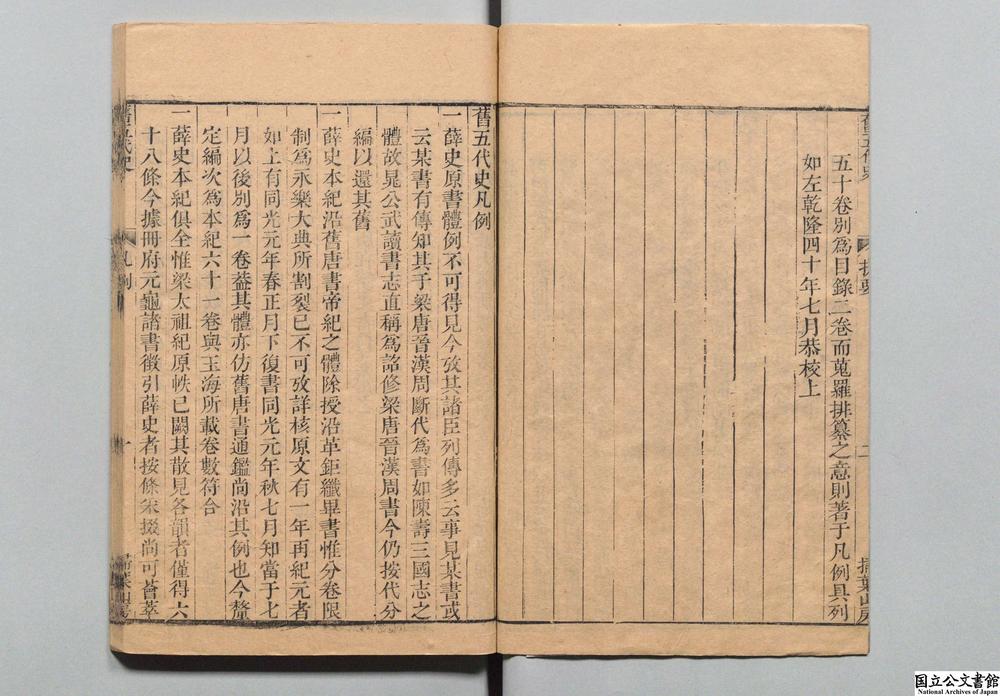 五十卷別爲目錄二卷而蒐羅排纂之意則著于凡例具列
如左乾隆四十年七月恭校上
舊五代史
提要
二
掃葉山房
舊五代史凡例
一薛史原書體例不可得見今攷其諸臣列傳多云事見某書或
云某書有傳知其于梁唐晉漢周斷代爲書如陳壽三國志之
體故晁公武讀書志直稱爲詔修梁唐晉漢周書今仍按代分
編以還其舊
一薛史本紀沿舊唐書帝紀之體除授沿革鉅纖畢書惟分卷限
制爲永樂大典所割裂已不可攷詳核原文有一年再紀元者
如上有同光元年春正月下復書同光元年秋七月知當于七
月以後別爲一卷葢其體亦仿舊唐書通鑑尚沿其例也今釐
定編次爲本紀六十一卷與玉海所載卷數符合
一薛史本紀俱全惟梁太祖紀原帙已闕其散見各韻者僅得六
十八條今據冊府元龜諸書徵引薛史者按條采掇尚可薈萃
舊五代史
凡例
一
掃葉山房
国立公文書館
National Archives of Japan